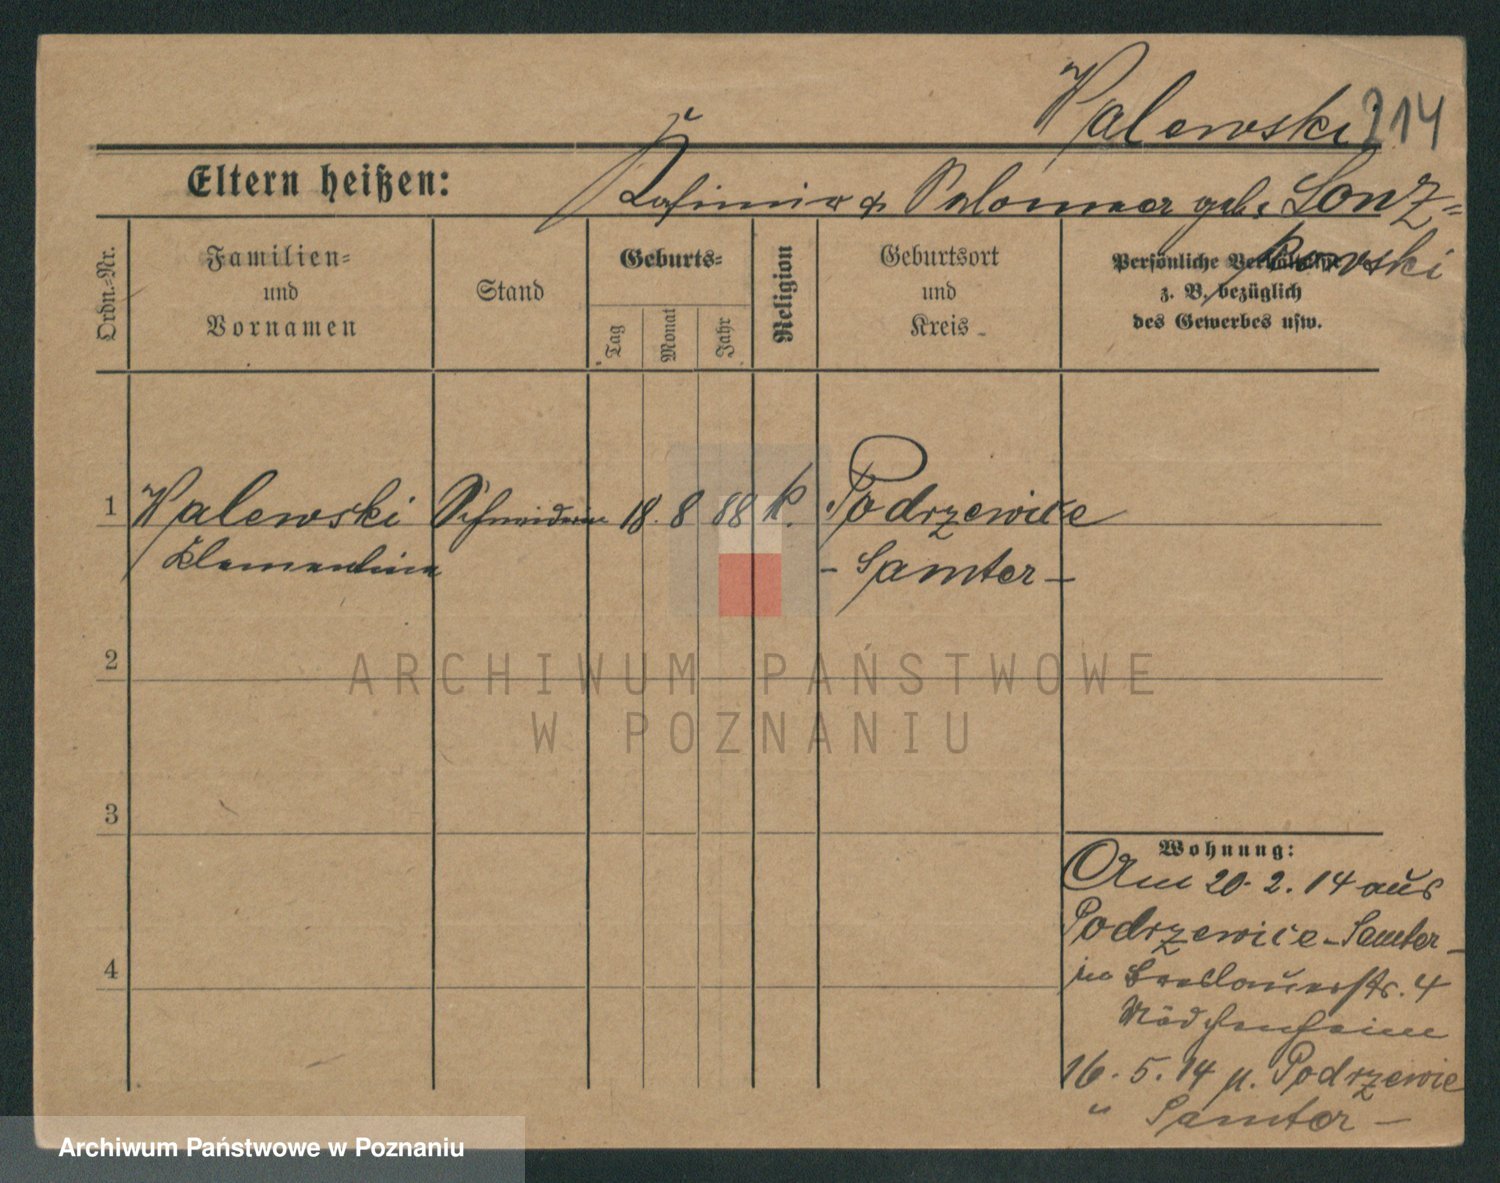 Walewski 214
Eltern heißen: Kasimir & Salomea geb. Sonz=
kowski
Ordn.=Nr.
Familien=
und
Vornamen
Stand
Geburts=
Tag
Monat
Jahr
Religion
Geburtsort
und
Kreis
Persönliche Verhältnisse
z. B. bezüglich
des Gewerbes usw.
1 Walewski Schneiderin 18. 8 88 k. Podrzewice
Klementine - Samter -
2
3
4
Wohnung:
Am 20. 2. 14 aus
Podrzewice - Samter -
in Breslauerstr. 4
Mädchenheim
16. 5. 14 n. Podrzewice
" Samter -
ARCHIWUM PAŃSTWOWE
W POZNANIU
Archiwum Państwowe w Poznaniu